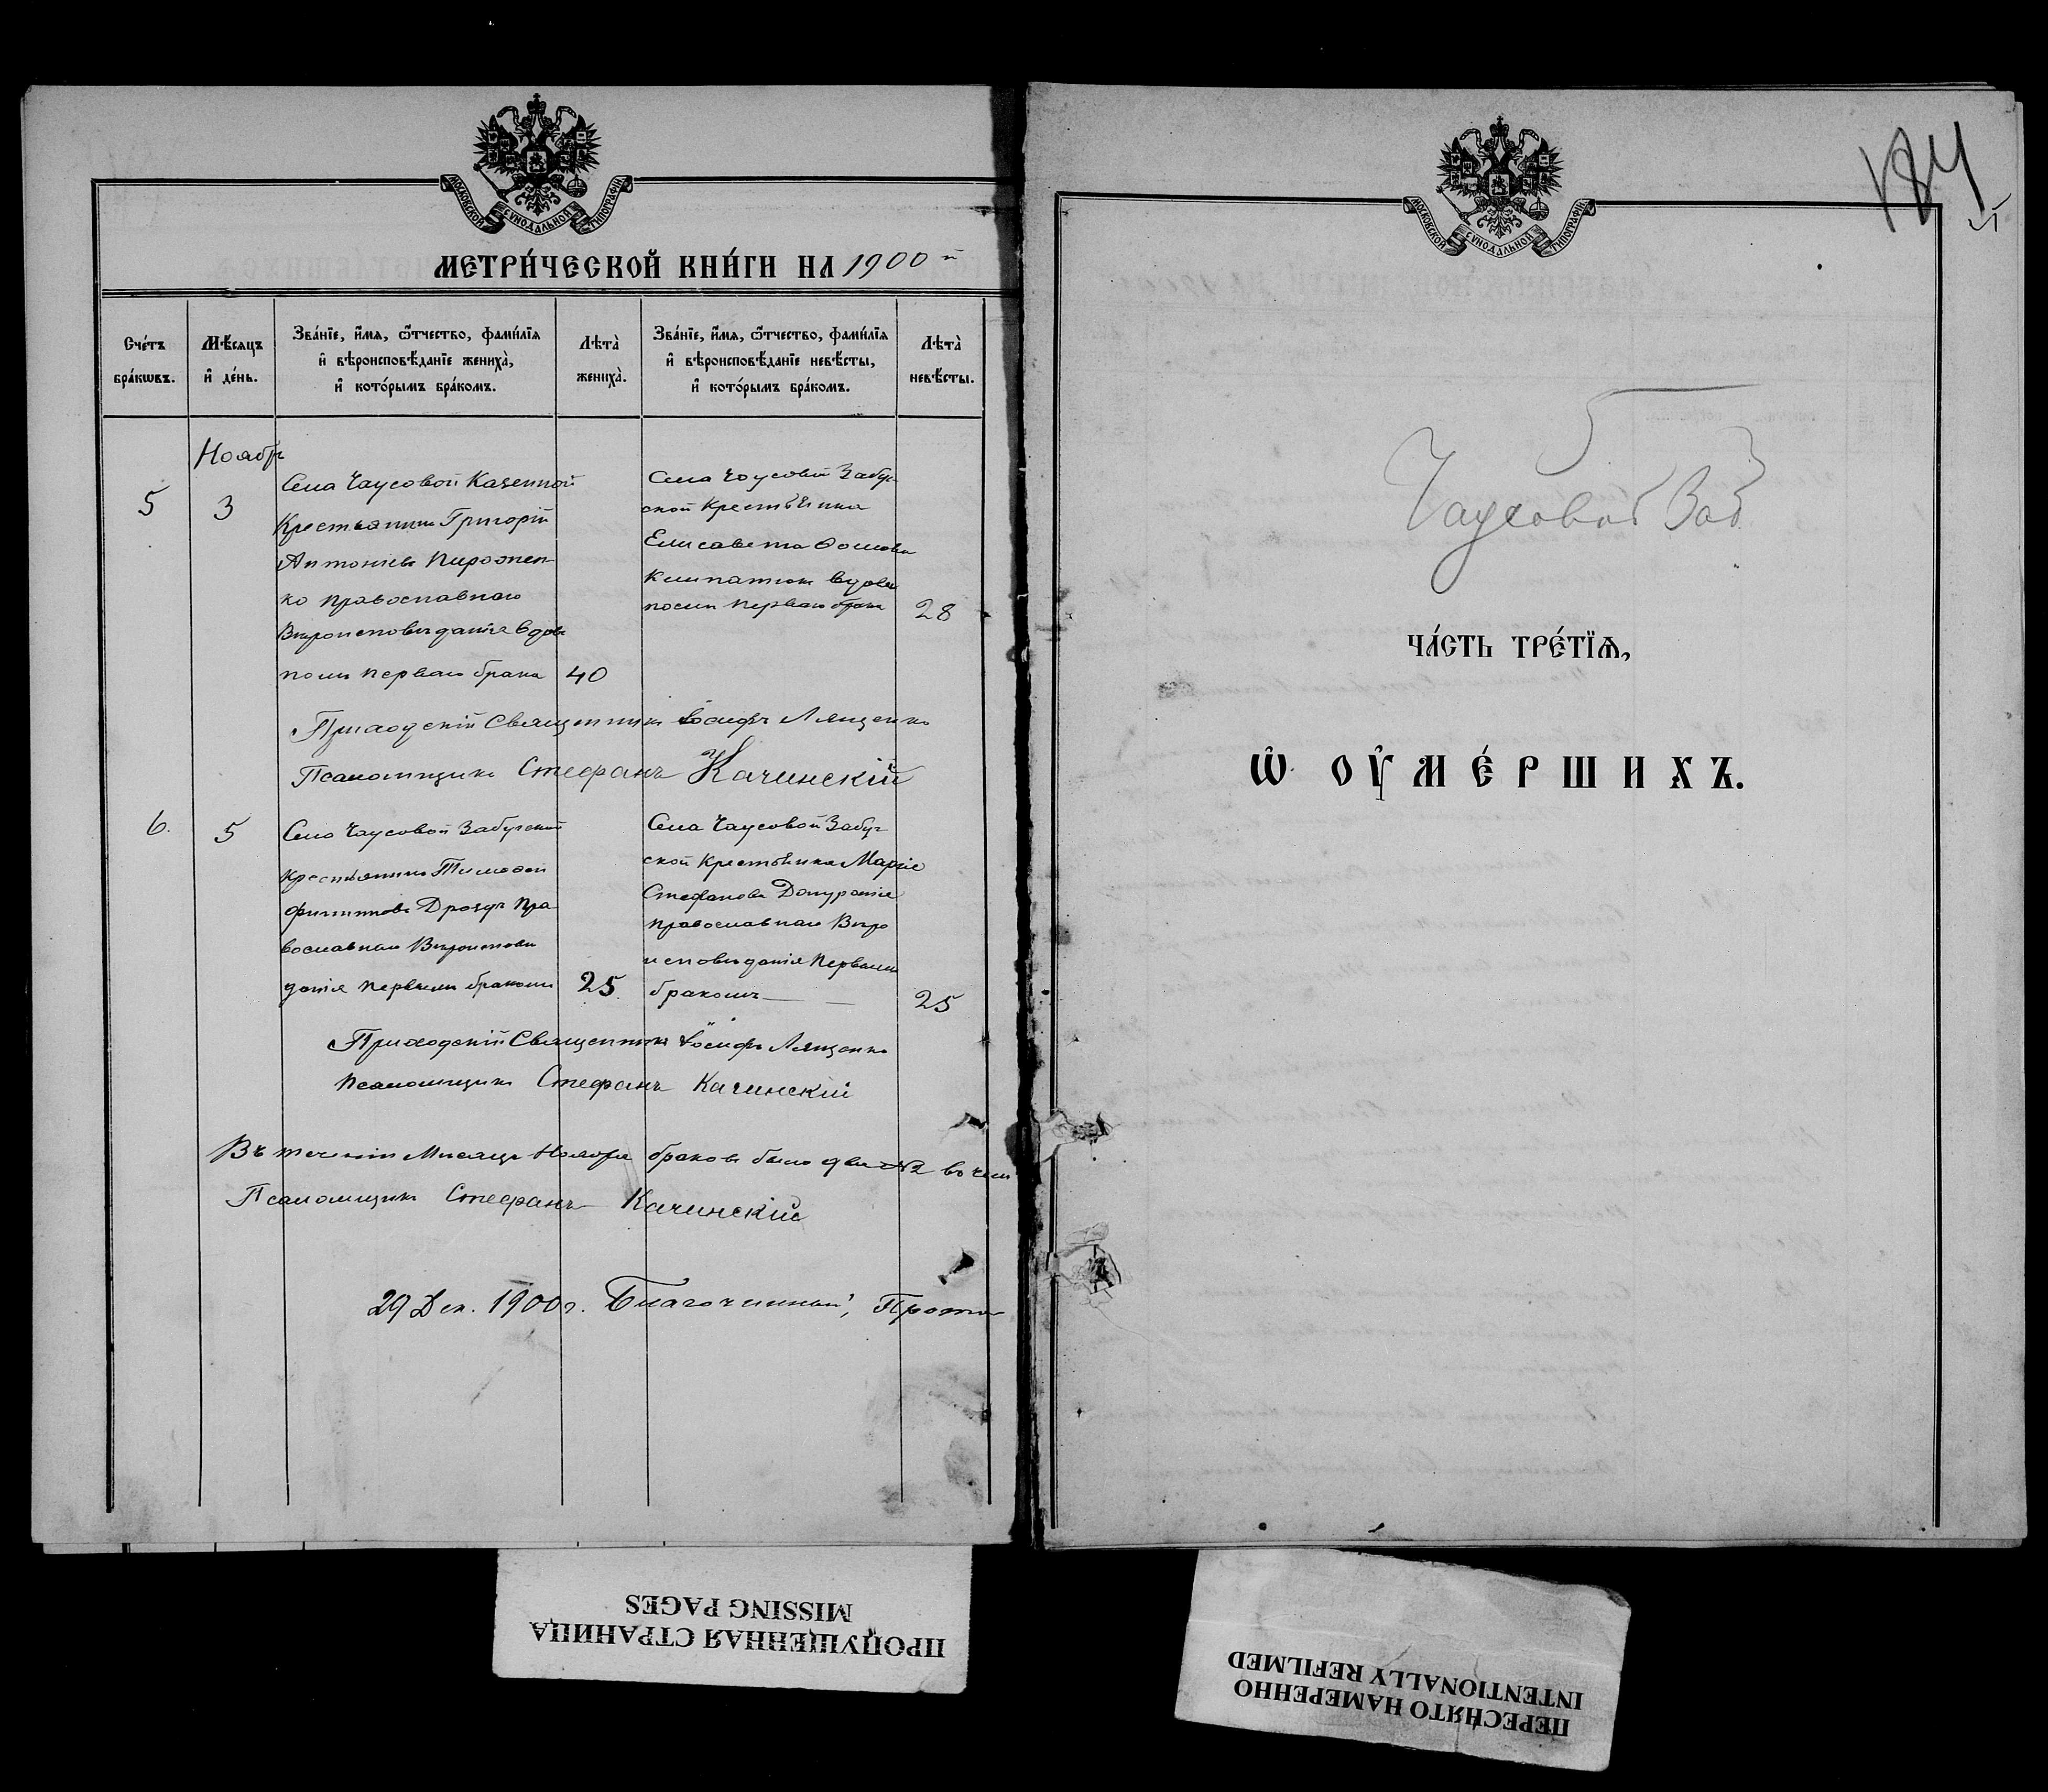 МОСКОВСКОЙ СѴНОДАЛЬНОЙ ТИПОГРАФІИ
МЕТРИ́ЧЕСКОЙ КНИ́ГИ НА 1900 й
Сче́тъ бра́кѡвъ.
Мѣ́сяцъ и҆ де́нь.
Зва́нїе, и҆́мѧ, ѻ҆́тчество, фами́лїѧ
и҆ вѣроисповѣ́данїе жениха̀,
и҆ кото́рымъ бра́комъ.
Лѣта̀ жениха̀.
Зва́нїе, и҆́мѧ, ѻ҆́тчество, фами́лїѧ
и҆ вѣроисповѣ́данїе невѣ́сты,
и҆ кото́рымъ бра́комъ.
Лѣта̀ невѣ́сты.
Ноябр
5
3
Села Чаусовой Казенной
Крестьянинъ Григорій
Антоніевъ Пирожен-
ко православнаго
Вѣроисповѣданія вдов
послѣ перваго брака
40
Села Чаусовой Забуг
ской Крестьянка
Елисавета Ѳомова
вдова
послѣ перваго брака
28
Приходскій Священникъ Іосифъ Лященко
Псаломщикъ Стефанъ Качинскій
6.
5
Села Чаусовой Забугской
Крестьянинъ Тимофей
Филиповъ Дроздъ Пра-
вославнаго Вѣроисповѣ
данія первымъ бракомъ
25
Села Чаусовой Забуг-
ской Крестьянка Марія
Стефанова
православнаго Вѣро
исповѣданія первымъ
бракомъ
25
Приходскій Священникъ Іосифъ Лященко
Псаломщикъ Стефанъ Качинскій
Въ теченіи Мѣсяца Ноября браковъ было два №2 въ чем
Псаломщикъ Стефанъ Качинскій
29 Дек. 1900 г. Благочинный, Прото
МОСКОВСКОЙ СѴНОДАЛЬНОЙ ТИПОГРАФІИ
184
Чаусовой Заб
ЧА́СТЬ ТРЕ́ТЇѦ,
Ѡ҆ ОУ҆МЕ́РШИХЪ.
ПРОПУЩЕННАЯ СТРАНИЦА
MISSING PAGES
ПЕРЕСНЯТО НАМЕРЕННО
INTENTIONALLY REFILMED